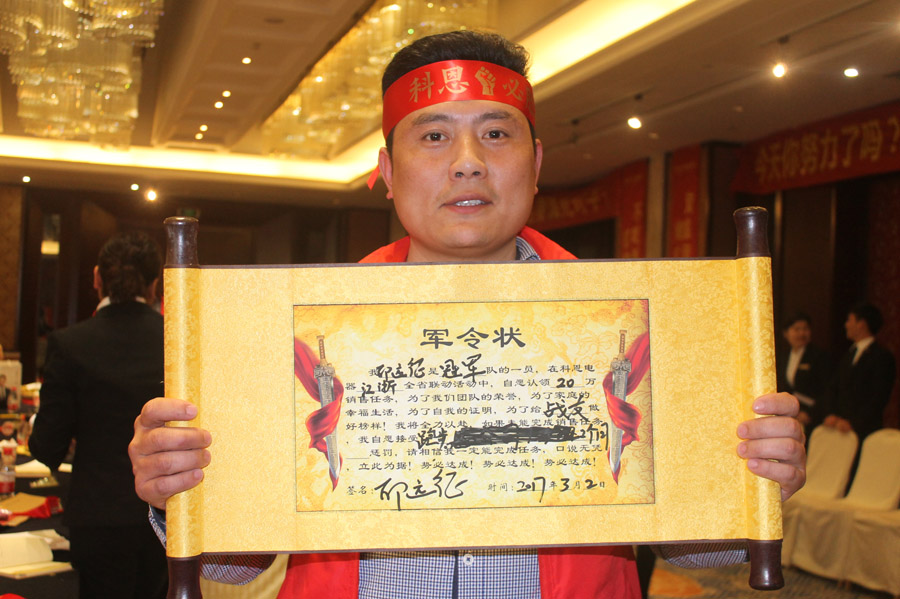 科恩 必
今天你努力了吗?
军令状
我邝远征是冠军队的一员，在科恩电
器江浙全省联动活动中，自愿认领20万
销售任务，为了我们团队的荣誉，为了家庭的
幸福生活，为了自我的证明，为了给战友做
好榜样！我将全力以赴，如果未能完成销售任务
，我自愿接受跑步
惩罚，请相信我一定能完成任务，口说无凭
，立此为据！势必达成！势必达成！势必达成！
签名：邝远征 时间：2017年3月2日